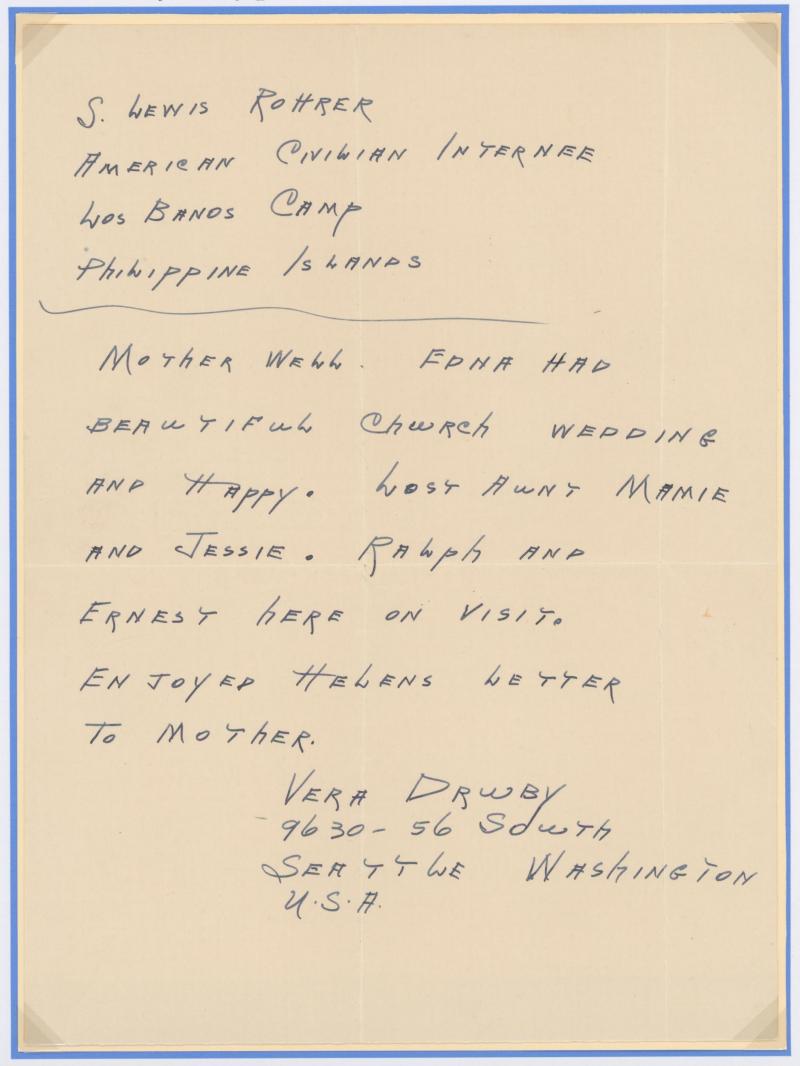 S. Lewis Rohrer
American Civilian Internee
Los Banos Camp
Philippine Islands
Mother Well. Edna Had
Beautiful Church Wedding
and Happy. Lost Aunt Mamie
and Jessie. Ralph and
Ernest here on visit.
Enjoyed Helens letter
to Mother.
Vera Druby
9630 - 56 South
Seattle Washington
U.S.A.